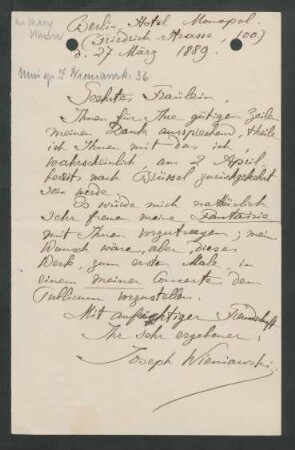 Berlin, Hotel Monopol.
(Friedrich Strasse, 100)
d. 27 März 1889.
an Mary
Mus. ep. J. Wieniawski 36
Geehrtes Fräulein,
Ihnen für Ihre gütigen Zeilen
meinen Dank aussprechend, theile
ich Ihnen mit das ich,
wahrscheinlich, am 2 April,
bereit nach Brüssel zurückgekehrt
sein werde.
Es würde mich natürlich
sehr freuen meine Fantaisie
mit Ihnen vorzutragen; mein
Wunsch wäre, aber, dieses
Werk, zum ersten Male, in
einem meiner Concerte dem
Publicum vorzustellen.
Mit aufrichtiger Freundschaft
Ihr sehr ergebener:
Joseph Wieniawski.